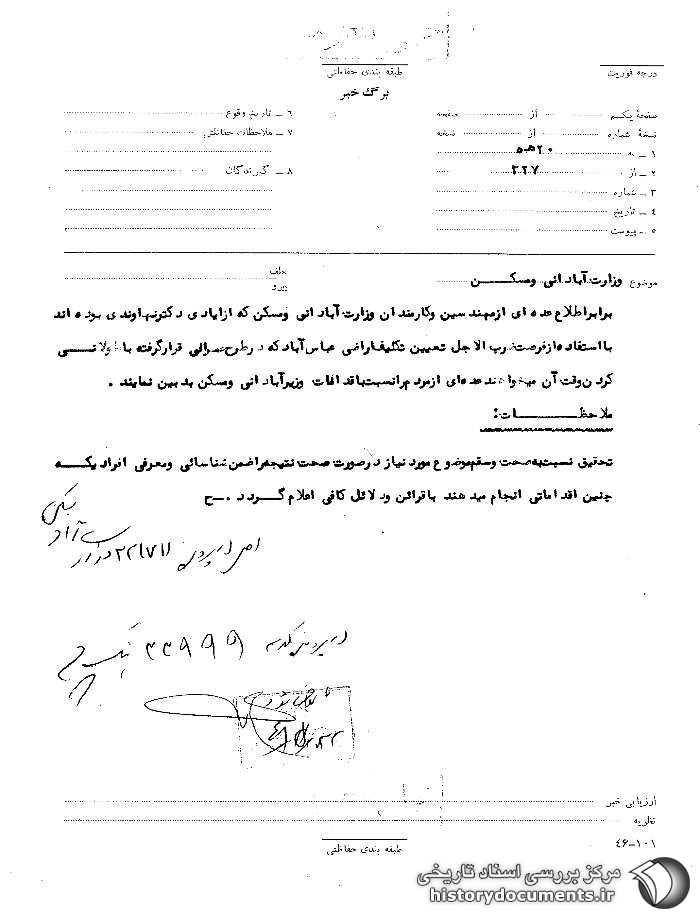 طبقه بندی حفاظتی
درجه فوریت
برگ خبر
صفحهٔ یکم از صفحه
نسخهٔ شماره از نسخه
۱ ــ به ۲۰ ه‍ ۵
۲ ــ از ۳۲۷
۳ ــ شماره
۴ ــ تاریخ
۵ ــ پیوست
۶ ــ تاریخ وقوع
۷ ــ ملاحظات حفاظتی
۸ ــ گیرندگان
موضوع وزارت آبادانی ومسکن
عطف
برابر اطلاع عده ای ازمهندسین وکارمندان وزارت آبادانی ومسکن که ازایادی دکترنهاوندی بوده اند
بااستفاده ازفرصت ضرب الاجل تعیین تکلیف اراضی عباس آبادکه درطرح عمرانی قرارگرفته با طولانی
کردن وقت آن میخواهند عده ای ازمردم رانسبت باقدامات وزیرآبادانی ومسکن بدبین نمایند .
ملاحظات:
تحقیق نسبت به صحت وسقم موضوع مورد نیاز درصورت صحت نتیجه راضمن شناسائی ومعرفی افرادیکه
چنین اقداماتی انجام میدهند باقرائن ودلائل کافی اعلام گردد .ـح
ارزیابی خبر
نظریه
۴۶-۱۰۱
طبقه بندی حفاظتی
مرکز بررسی اسناد تاریخی
historydocuments.ir